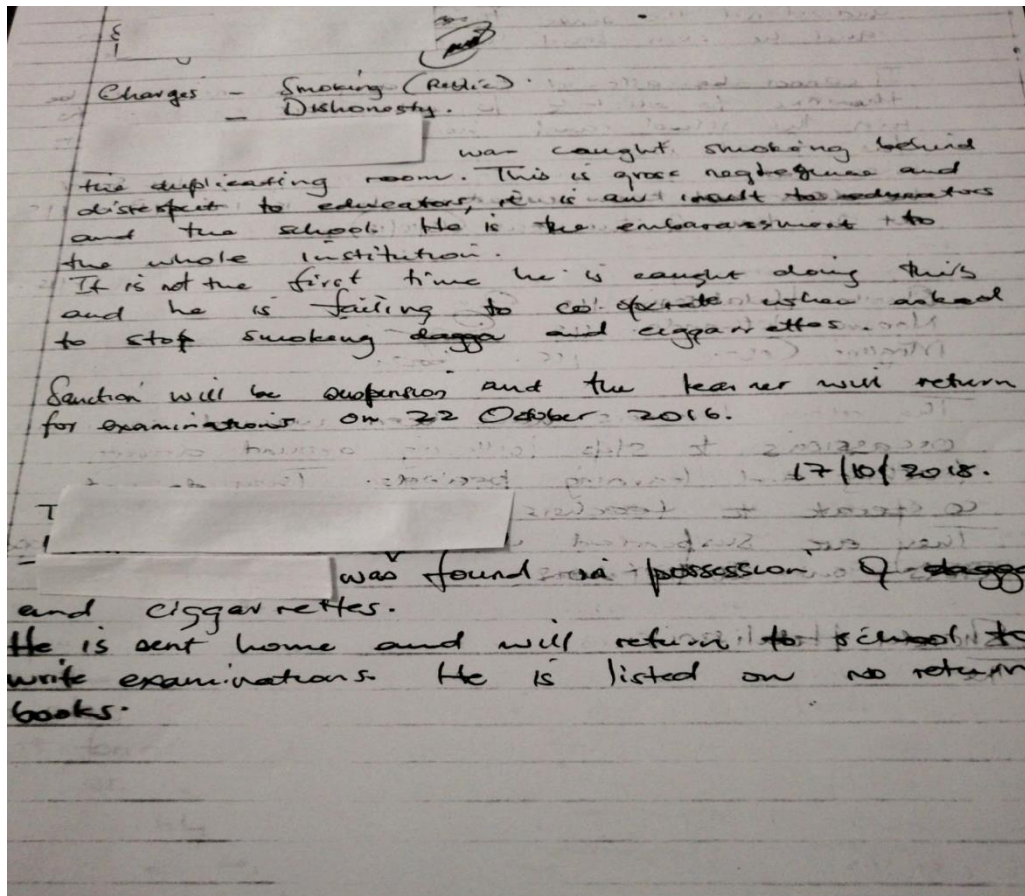 Charges - Smoking (Public).
- Dishonesty.
was caught smoking behind
the duplicating room. This is gross neglegence and
disrespect to educators, it is an insult to educators
and the school. He is the embarassment to
the whole institution.
It is not the first time he is caught doing this
and he is failing to co-operate when asked
to stop smoking dagga and ciggarrettes.
Sanction will be suspension and the learner will return
for examinations on 22 October 2016.
17/10/2018.
T
was found in possession of dagga
and ciggarrettes.
He is sent home and will return to school to
write examinations. He is listed on no return
books.